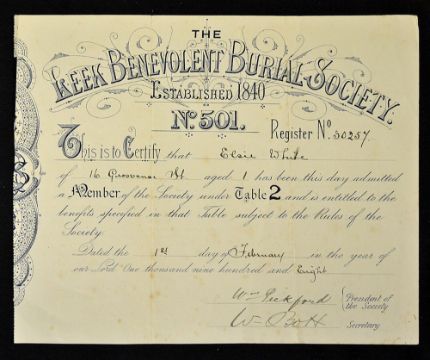 THE
LEEK BENEVOLENT BURIAL SOCIETY.
ESTABLISHED 1840
No. 501. Register No. 50257.
This is to Certify that Elsie White
of 16 Grosvenor St aged 1 has been this day admitted
a Member of the Society under Table 2 and is entitled to the
benefits specified in that Table subject to the Rules of the
Society.
Dated the 1st day of February in the year of
our Lord One thousand nine hundred and Eight
Wm Pickford President of the Society
W. Secretary